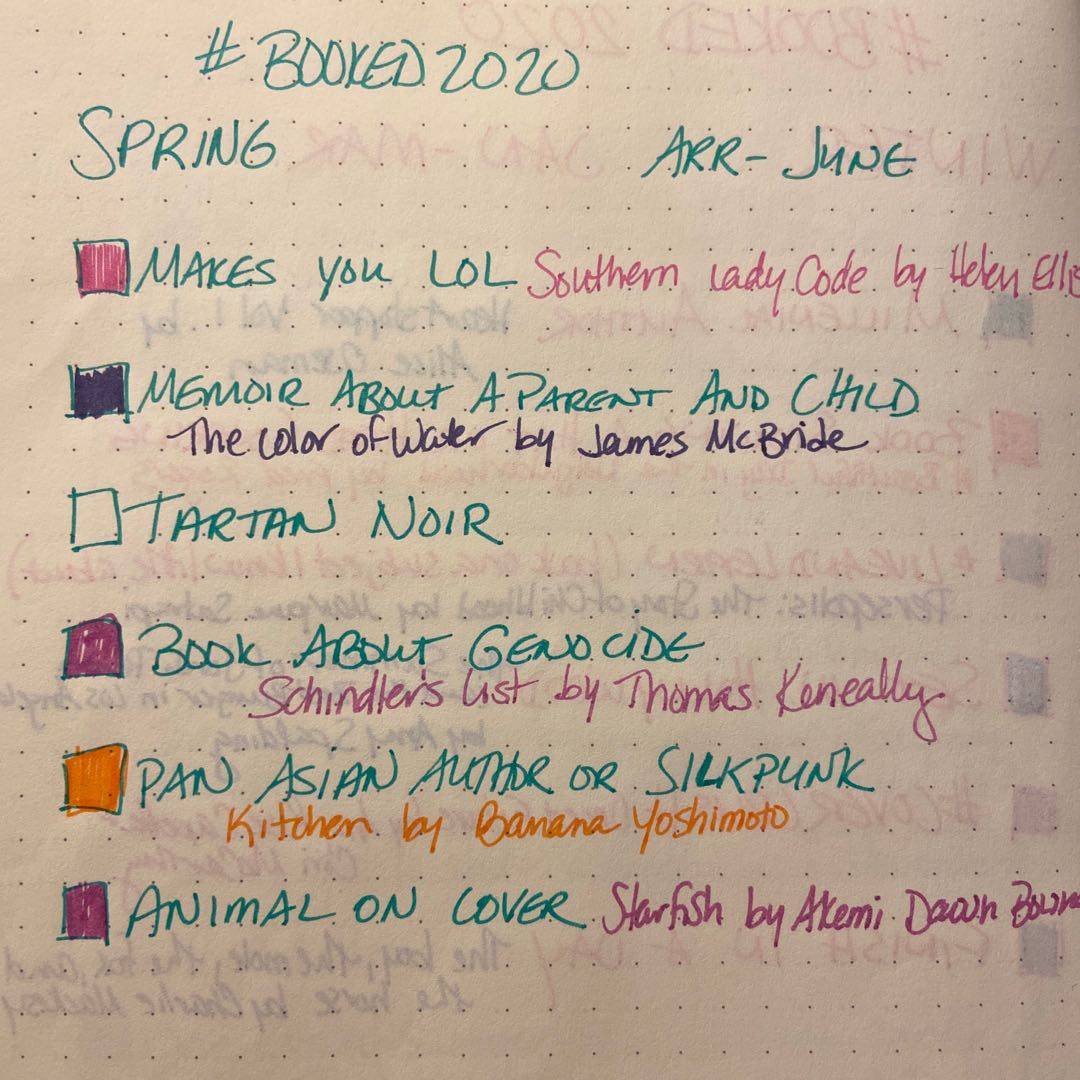 # BOOKED 2020
SPRING APR - JUNE
MAKES YOU LOL Southern Lady Code by Helen Ellis
MEMOIR ABOUT A PARENT AND CHILD
The Color of Water by James McBride
TARTAN NOIR
BOOK ABOUT GENOCIDE
Schindler's List by Thomas Keneally
PAN ASIAN AUTHOR OR SILKPUNK
Kitchen by Banana Yoshimoto
ANIMAL ON COVER Starfish by Akemi Dawn